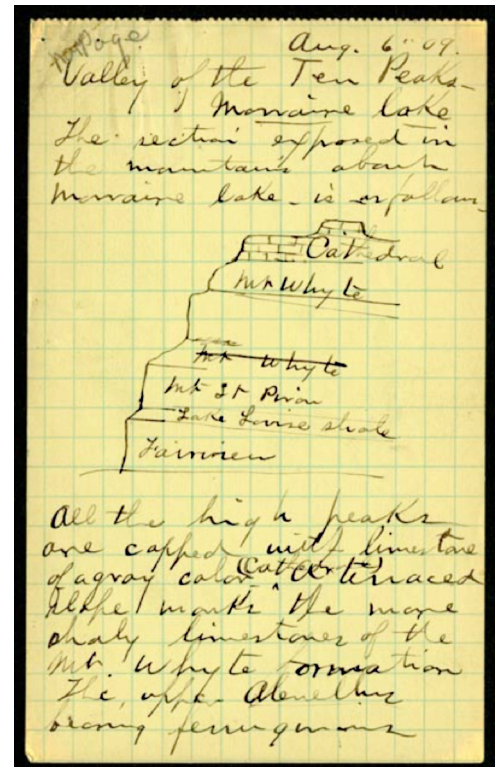 Aug. 6" 09.
Valley of the Ten Peaks -
Morraine lake
The section exposed in
the mountains about
Morraine lake - is as follows -
Cathedral
Mt Whyte
Mt Whyte
Mt St Piran
Lake Louise shale
Fairview
All the high peaks
are capped with limestone
of a gray color (Cathedral) A terraced
slope marks the more
shaly limestones of the
Mt. Whyte formation
The upper Olenellus
bearing ferruginous